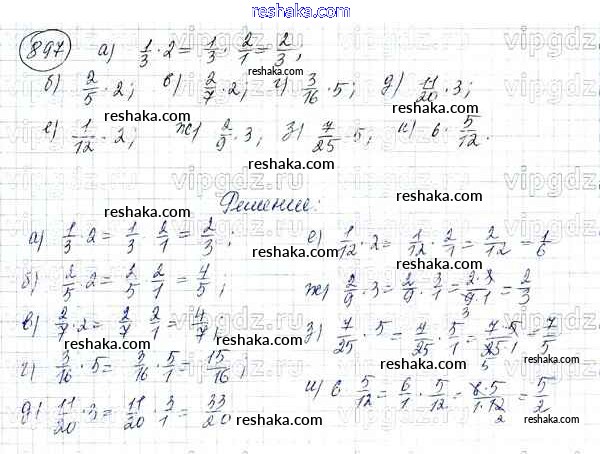 reshaka.com
897 а) 1/3 · 2 = 1/3 · 2/1 = 2/3;
б) 2/5 · 2; в) 2/7 · 2; г) 3/16 · 5; д) 11/20 · 3;
е) 1/12 · 2; ж) 2/9 · 3; з) 7/25 · 5; и) 6 · 5/12.
Решение:
а) 1/3 · 2 = 1/3 · 2/1 = 2/3;
б) 2/5 · 2 = 2/5 · 2/1 = 4/5;
в) 2/7 · 2 = 2/7 · 2/1 = 4/7;
г) 3/16 · 5 = 3/16 · 5/1 = 15/16;
д) 11/20 · 3 = 11/20 · 3/1 = 33/20
е) 1/12 · 2 = 1/12 · 2/1 = 2/12 = 1/6
ж) 2/9 · 3 = 2/9 · 3/1 = 2·3/9·1 = 2/3
з) 7/25 · 5 = 7/25 · 5/1 = 7·5/25·1 = 7/5
и) 6 · 5/12 = 6/1 · 5/12 = 6·5/1·12 = 5/2